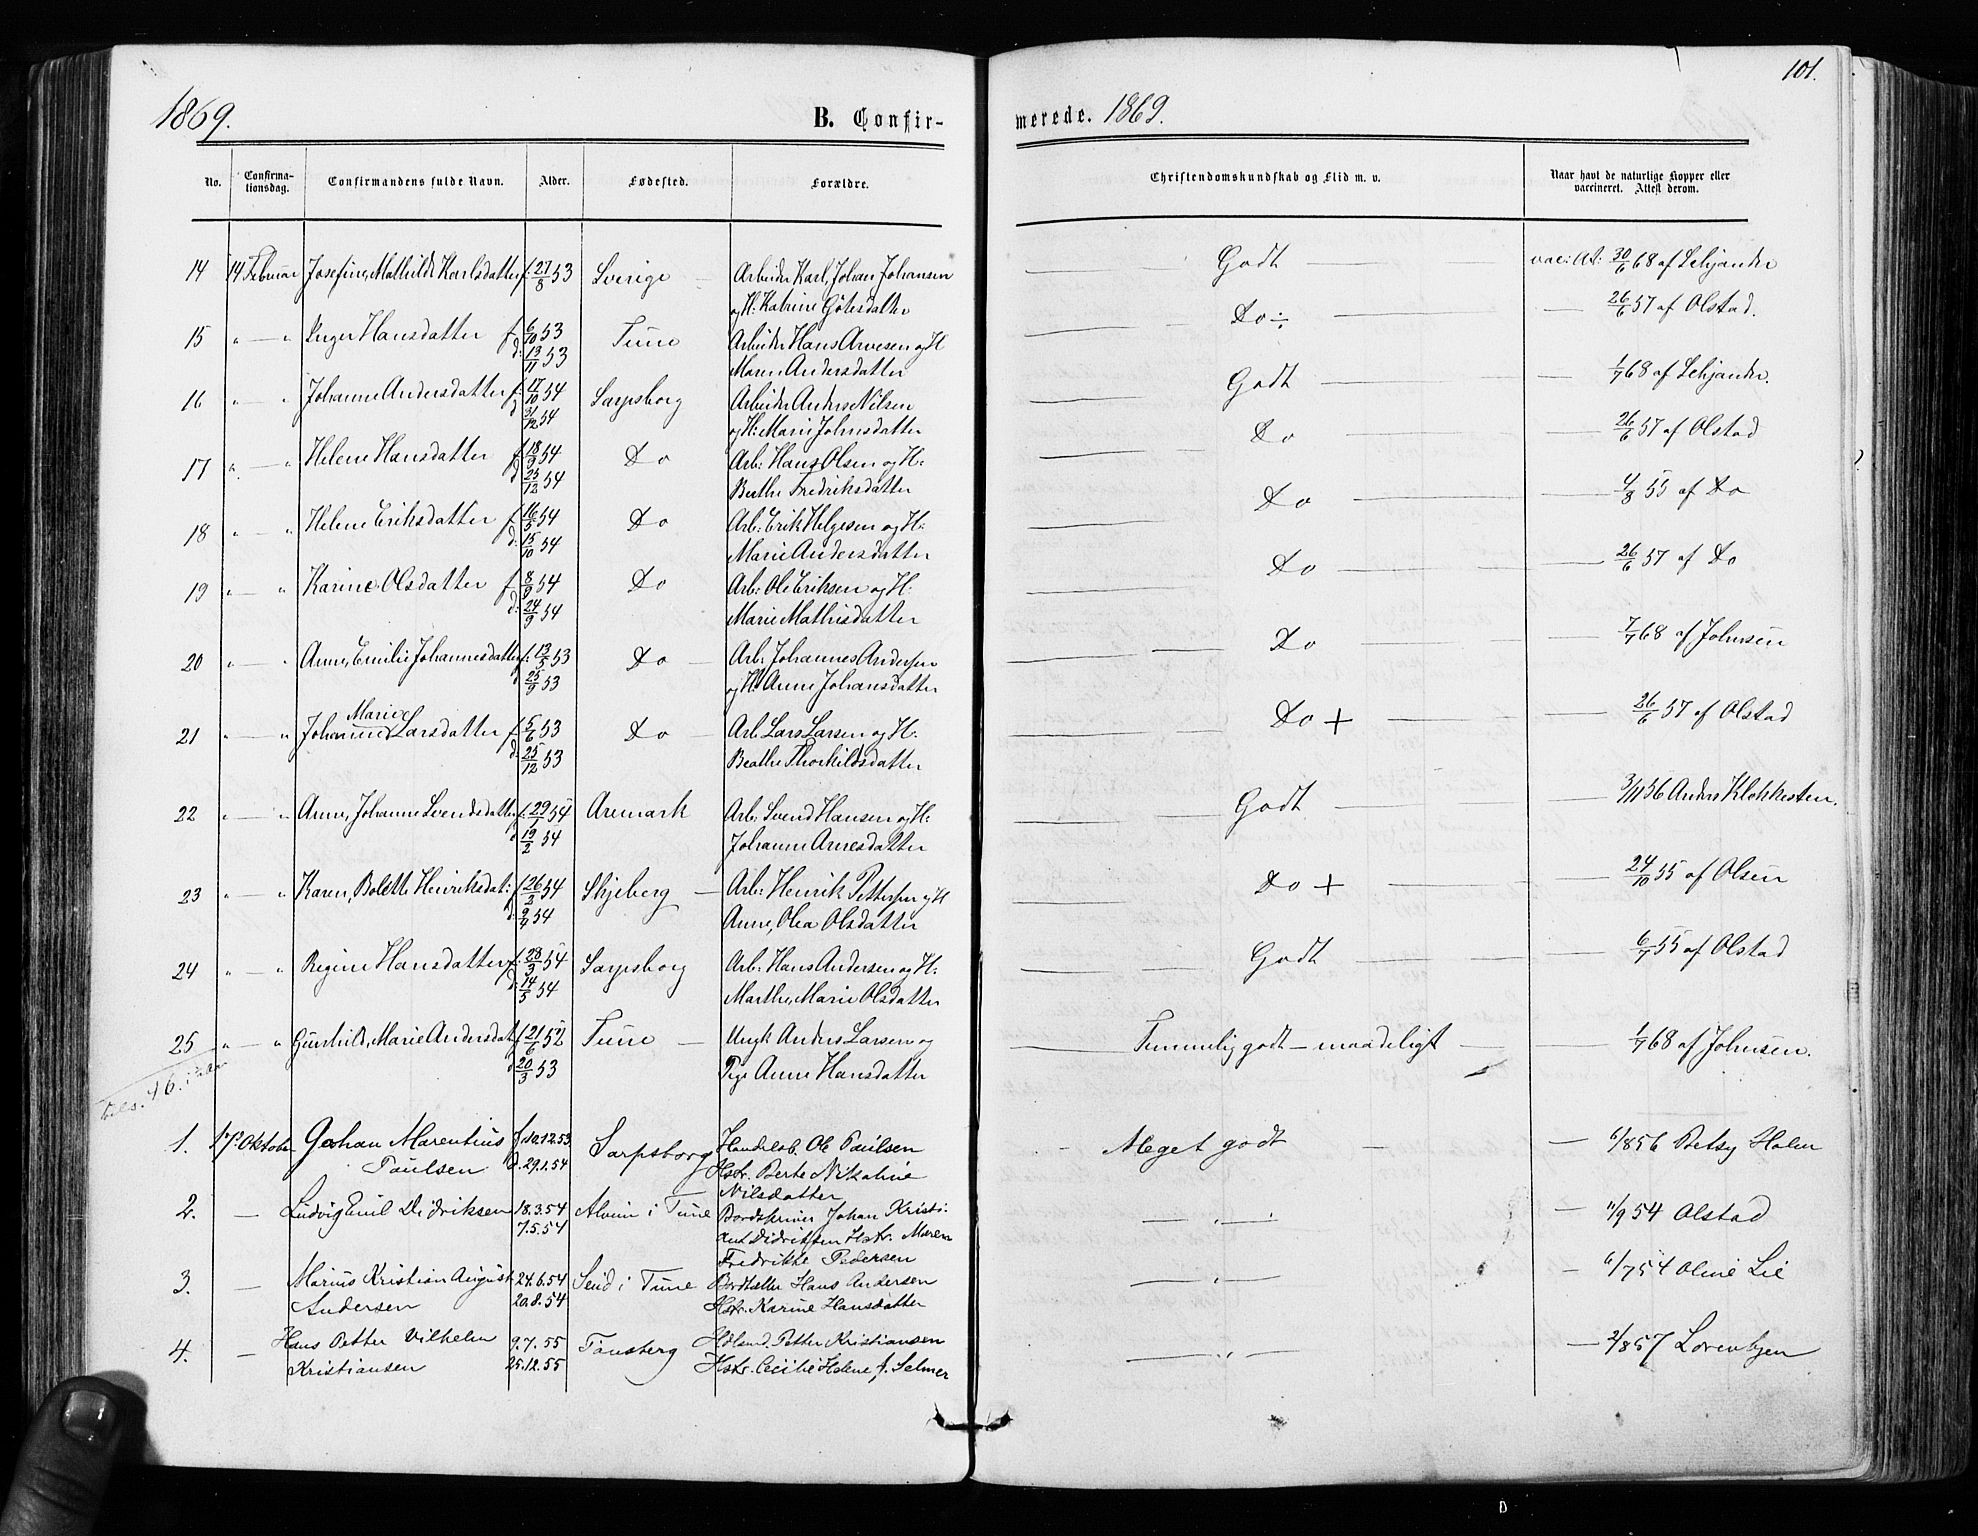 101.
1869. B. Confir- merede. 1869.
No. Confirma-tionsdag. Confirmandens fulde Navn. Alder. Fødested. Forældre. Christendomskundskab og Flid m. v. Naar havt de naturlige Kopper eller vaccineret. Attest derom.
14 14 Februar Josefine, Mathilde Karlsdatter f. 27/8 53 Sverige Arbeider Karl, Johan Johansen Godt vac: At: 30/6 68 af Lehjander
og H: Katrine Götesdatter
15 " — " Inger Hansdatter f 6/10 53 Tune Arbeider Hans Arvesen og H Do ÷ 26/6 57 af Olstad.
d: 13/11 53 Maren Andersdatter
16 " — " Johanne Andersdatter f: 17/10 54 Sarpsborg Arbeider Anders Nilsen Godt 1/7 68 af Lehjander.
d 31/12 54 og H: Marie Johnsdatter
17 " — " Helene Hansdatter f 18/9 54 Do Arb: Hans Olsen og H: Do 26/6 57 af Olstad
d 25/12 54 Berthe Fredriksdatter
18 " — " Helene Eriksdatter f 16/5 54 Do Arb: Erik Helgesen og H: Do 4/8 55 af Do
d: 15/10 54 Marie Andersdatter
19 " — " Karine Olsdatter f 8/9 54 Do Arb: Ole Eriksen og H: Do 26/6 57 af Do
d: 24/9 54 Marie Mathisdatter
20 " — " Anne, Emilie Johannesdatter f: 13/5 53 Do Arb: Johannes Andersen Do 7/7 68 af Johnsen
d 25/9 53 og H: Anne Johansdatter
21 " — " Johanne Marie Larsdatter f 5/6 53 Do Arb Lars Larsen og H: Do + 26/6 57 af Olstad
d: 25/12 53 Beathe Thorkildsdatter
22 " — " Anne, Johanne Svendsdatter f: 29/1 54 Aremark Arb: Svend Hansen og H: Godt 3/11 56 Anders Klokkesten.
d 19/2 54 Johanne Arnesdatter
23 " — " Karen, Bolette Henriksdat: f 26/2 54 Skjeberg Arb: Henrik Pettersen og H Do + 24/10 55 af Olsen
d: 9/4 54 Anne, Olea Olsdatter
24 " — " Regine Hansdatter f: 28/3 54 Sarpsborg Arb: Hans Andersen og H: Godt 6/7 55 af Olstad
d: 14/5 54 Marthe, Marie Olsdatter
25 " — " Gunhild, Marie Andersdat f 21/6 52 Tune Ungk Anders Larsen og Temmelig godt — maadeligt 1/7 68 af Johnsen.
d 20/3 53 Pige Anne Hansdatter
1. 17de Oktober Johan Marentius f 10.12.53 Sarpsborg Handelsb. Ole Paulsen Meget godt 6/8 56 Betsy Holm
Paulsen d. 29.1.54 Hstr. Berte Nikoline
Nilsdatter
2. — Ludvig Emil Didriksen 18.3.54 Alvim i Tune Bordskriver Johan Kristi: — " — 11/9 54 Olstad
7.5.54 Didriksen Hstr. Maren
Fredrikke Pedersen
3. — Marius Kristian August 24.6.54 Tune Hans Andersen — " — 6/7 54 Oline Lie
Andersen 20.8.54 Hstr. Karine Hansdatter
4. — Hans Petter Vilhelm 9.7.55 Tönsberg Petter Kristiansen — " — 2/8 57
Kristiansen 25.12.55 Hstr. Cecilie Helene f. Selmer